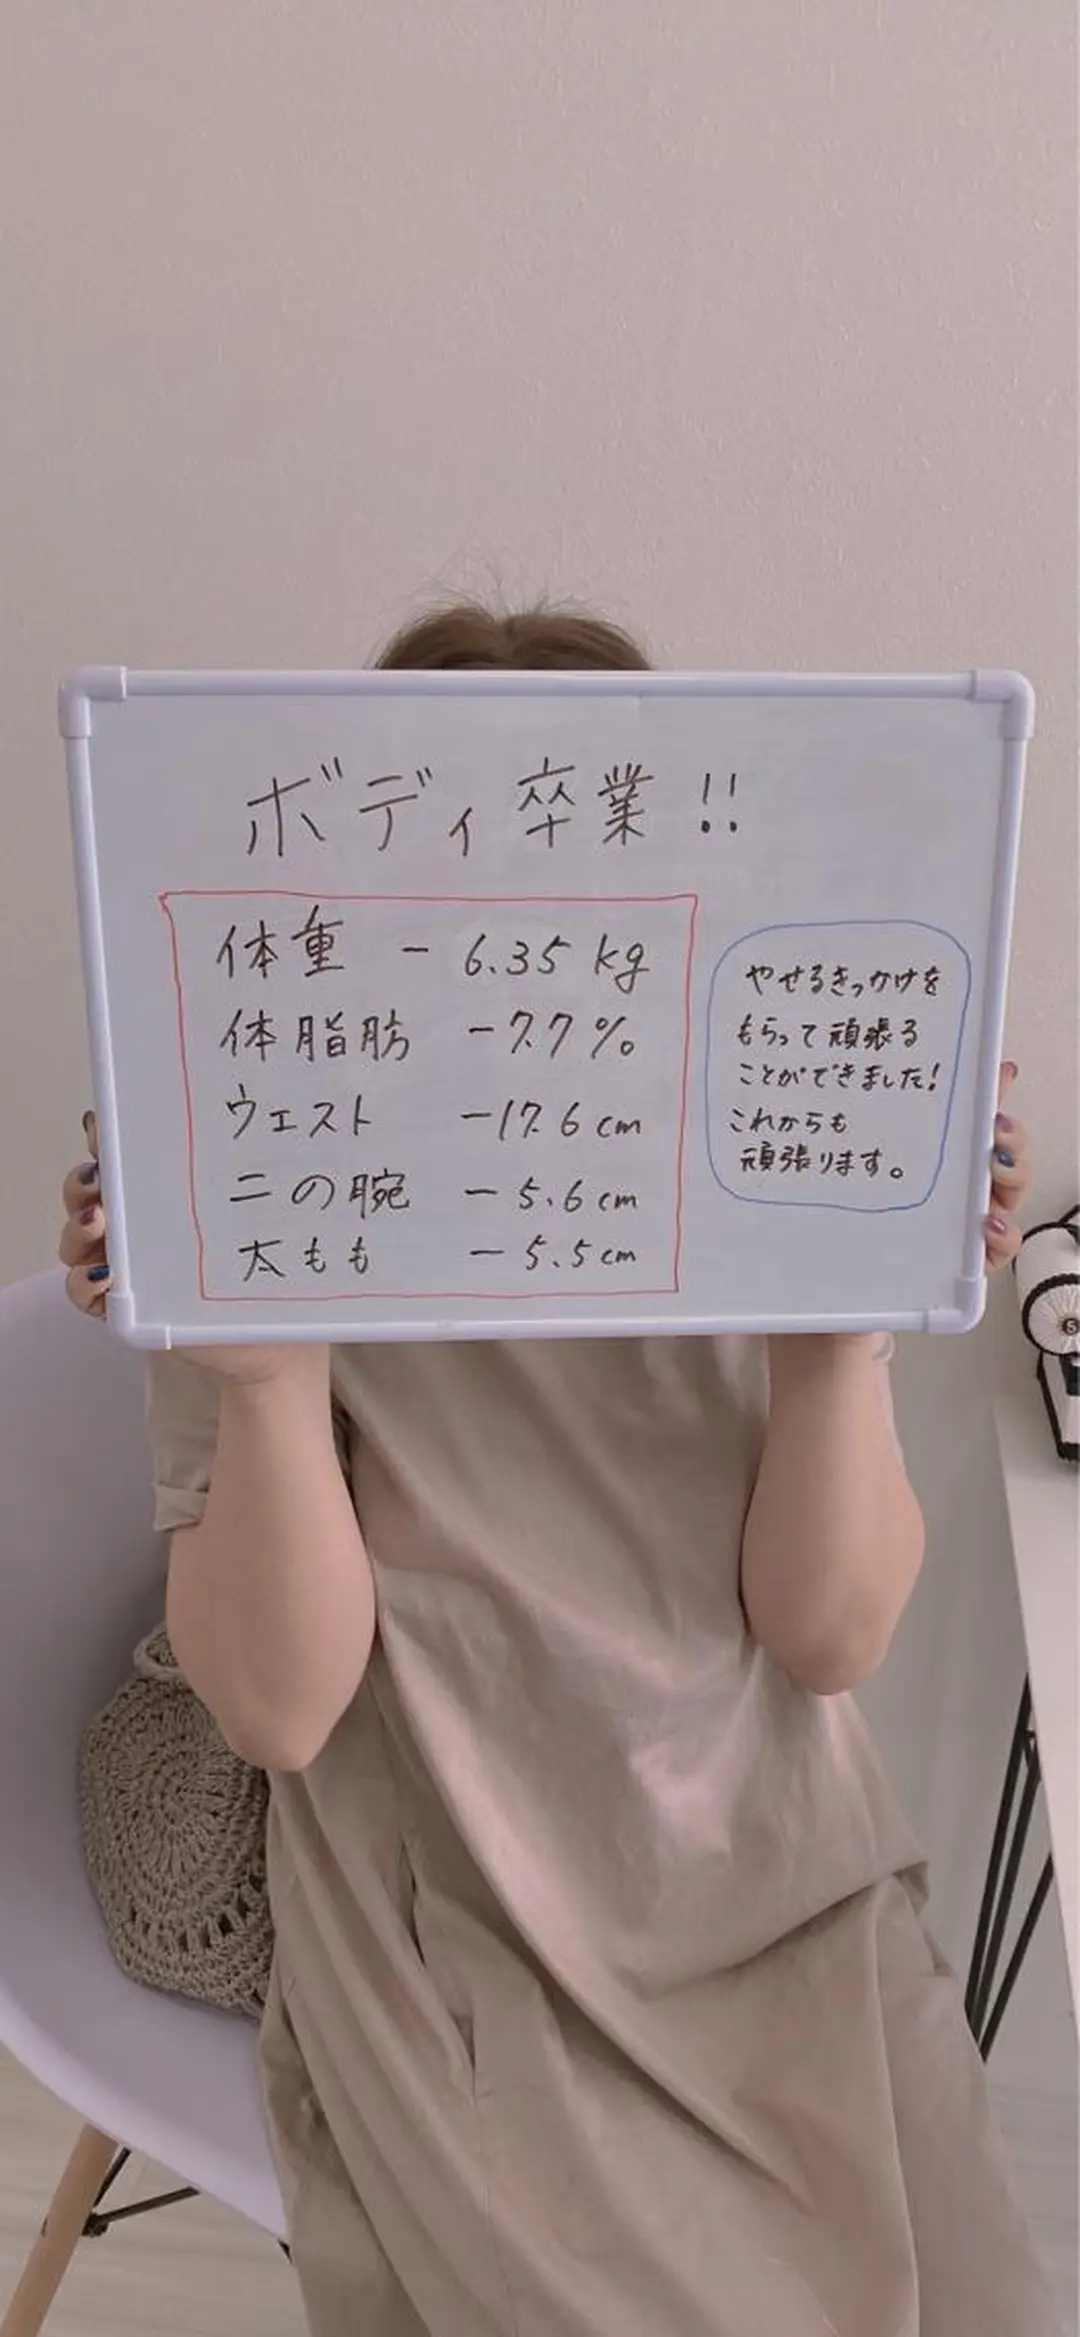 ボディ卒業!!
体重 -6.35kg
体脂肪 -7.7%
ウエスト -17.6cm
二の腕 -5.6cm
太もも -5.5cm
やせるきっかけを
もらって頑張る
ことができました!
これからも
頑張ります。
S